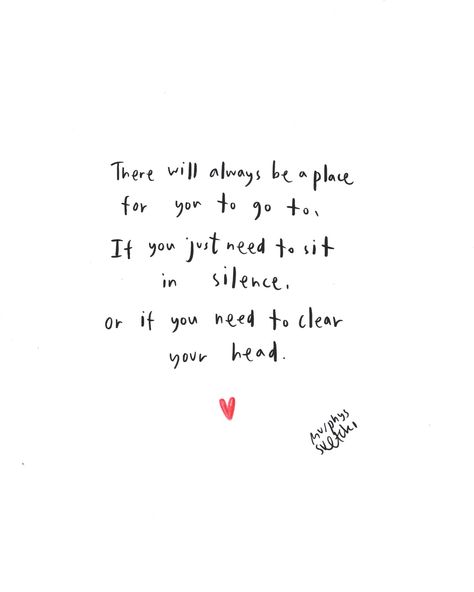 There will always be a place
for you to go to,
If you just need to sit
in silence,
or if you need to clear
your head.
murphys
sketches